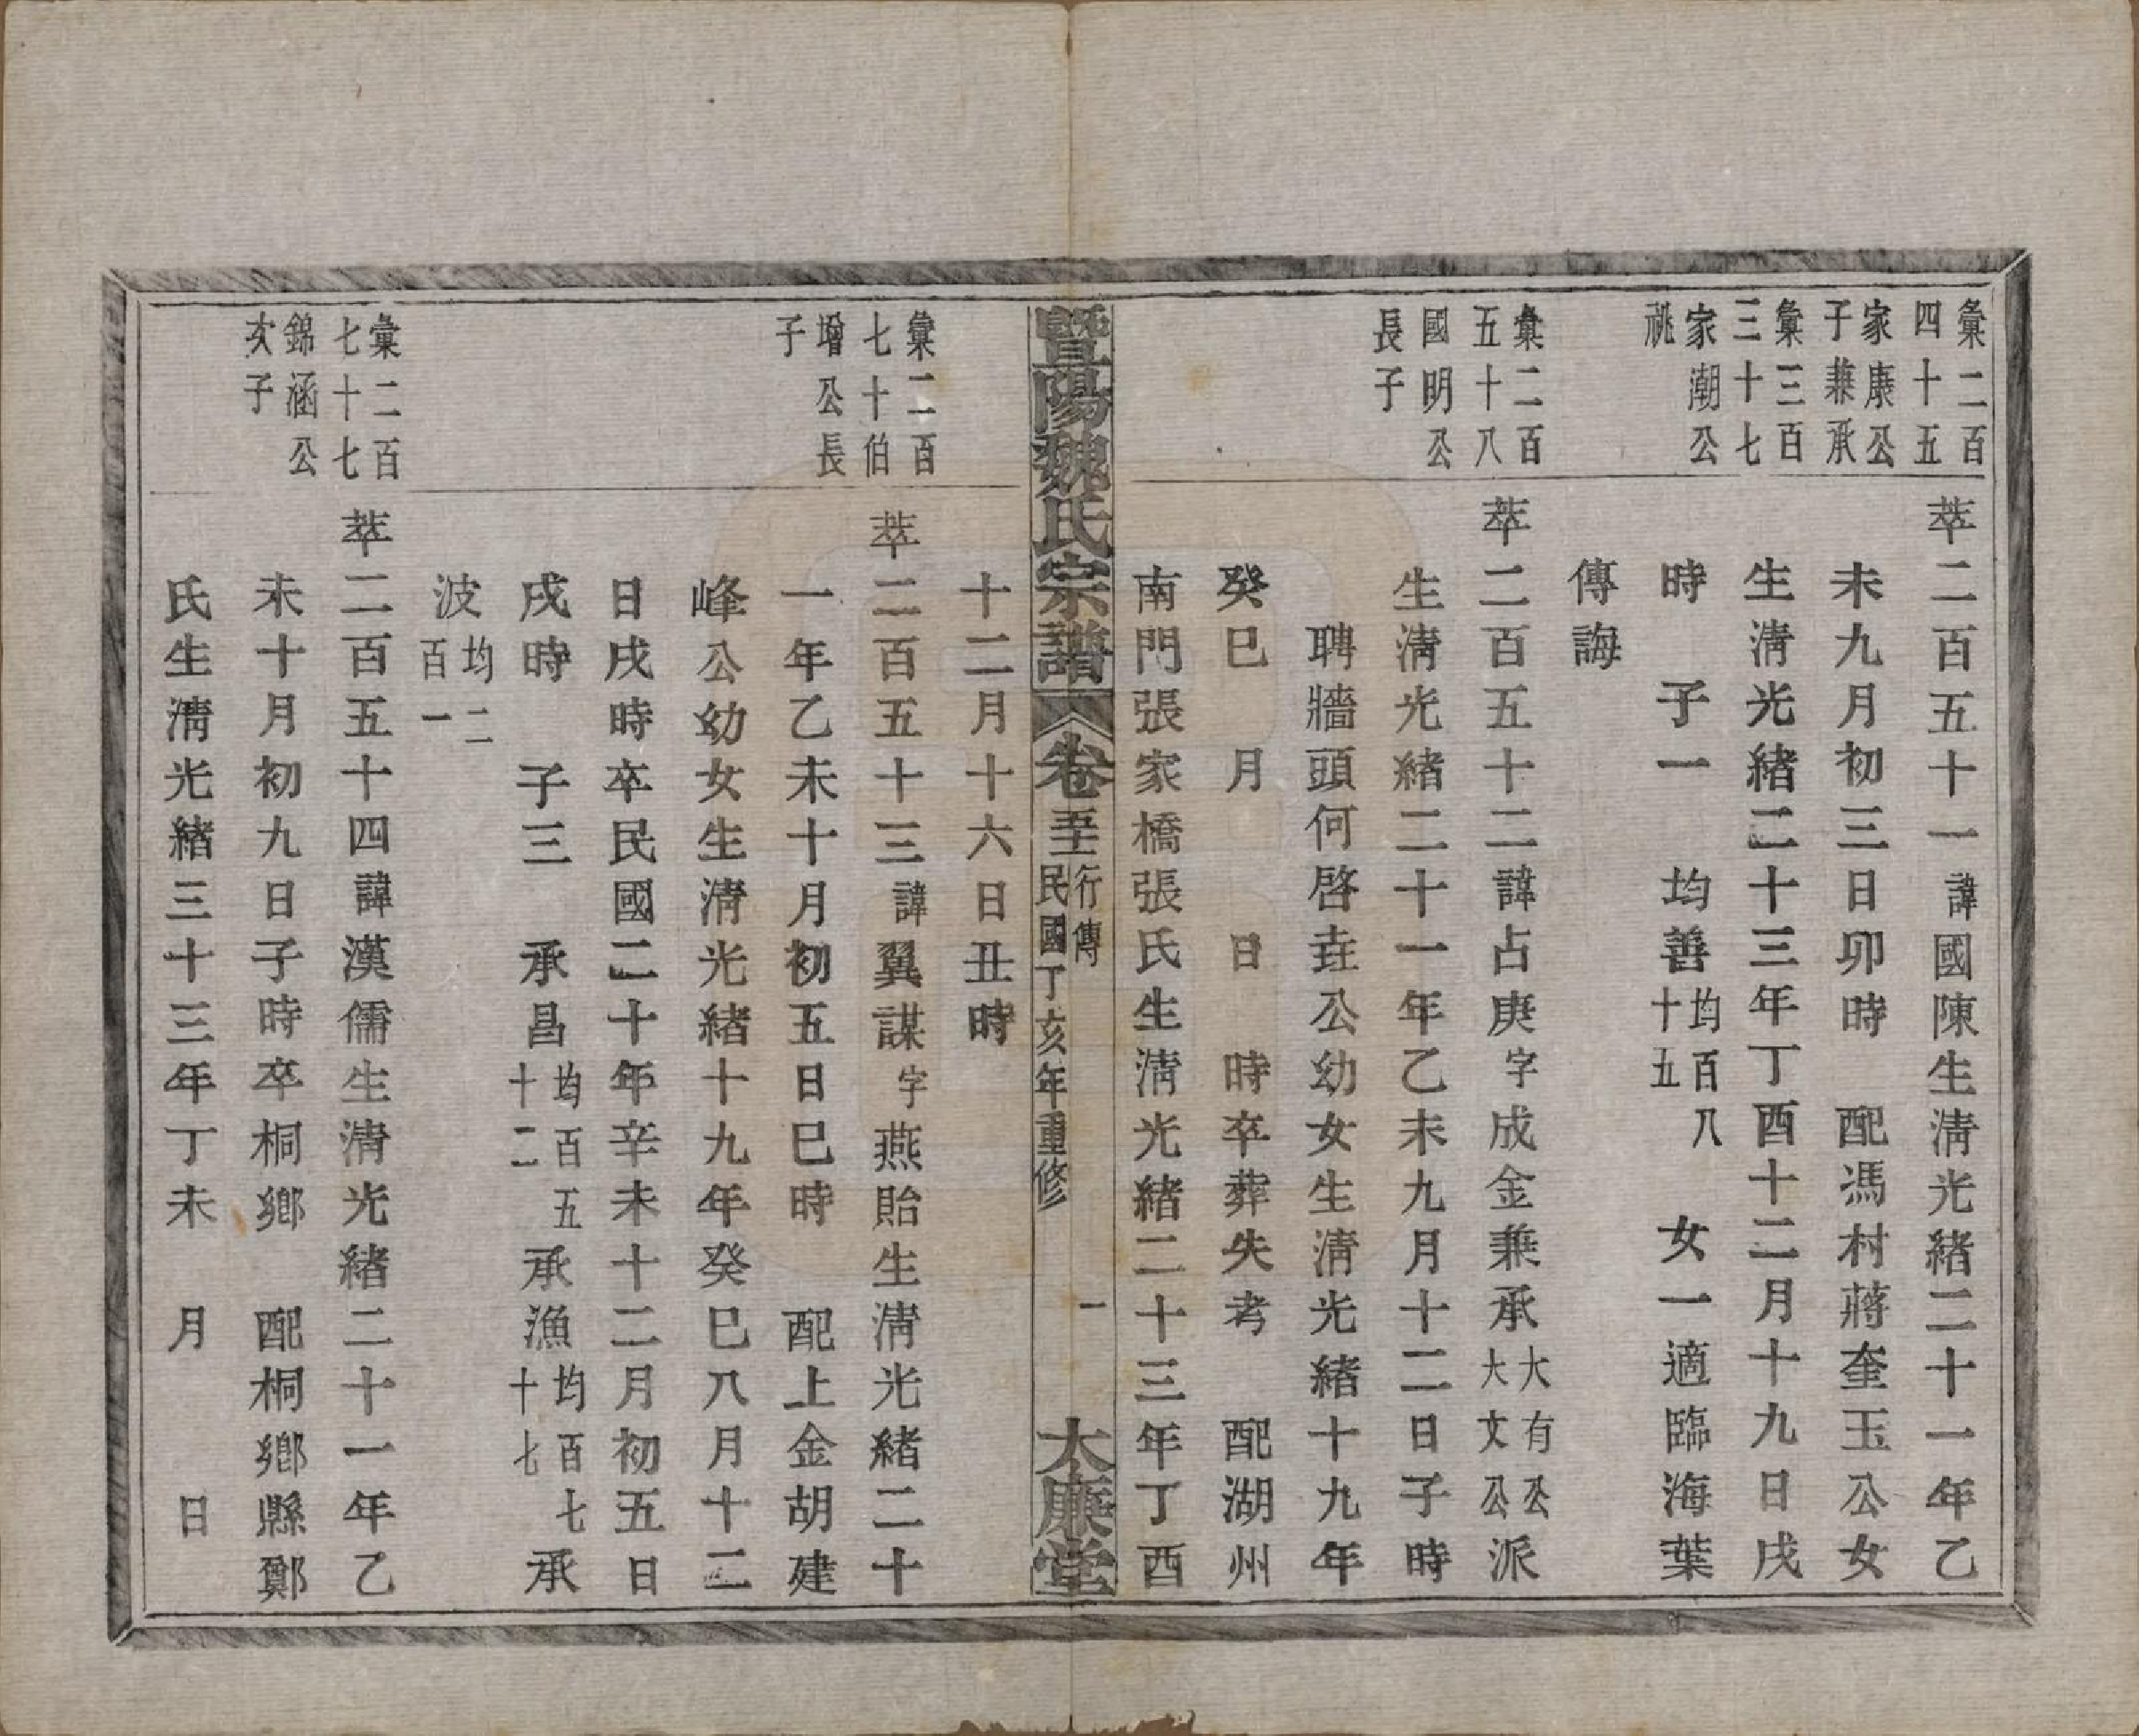 彙二百
四十五
家康公
子兼承
彙三百
三十七
家潮公
祧
萃二百五十一諱國陳生清光緒二十一年乙
未九月初三日卯時　配馮村蔣奎玉公女
生清光緒二十三年丁酉十二月十九日戌
時　子一　均善均百八十五　女一適臨海葉
傳誨
彙二百
五十八
國明公
長子
萃二百五十二諱占庚字成金兼承大有公大文公派
生清光緒二十一年乙未九月十二日子時
聘牆頭何啓垚公幼女生清光緒十九年
癸巳　月　日　時卒葬失考　配湖州
南門張家橋張氏生清光緒二十三年丁酉
暨陽魏氏宗譜　卷五十五　行傳　民國丁亥年重修　一　太廉堂
十二月十六日丑時
彙二百
七十伯
增公長
子
萃二百五十三諱翼謀字燕貽生清光緒二十
一年乙未十月初五日巳時　配上金胡建
峰公幼女生清光緒十九年癸巳八月十二
日戌時卒民國二十年辛未十二月初五日
戌時　子三　承昌均百五十二承漁均百七十七承
波均二百一
彙二百
七十七
錦涵公
次子
萃二百五十四諱漢儒生清光緒二十一年乙
未十月初九日子時卒桐鄉　配桐鄉縣鄭
氏生清光緒三十三年丁未　月　日